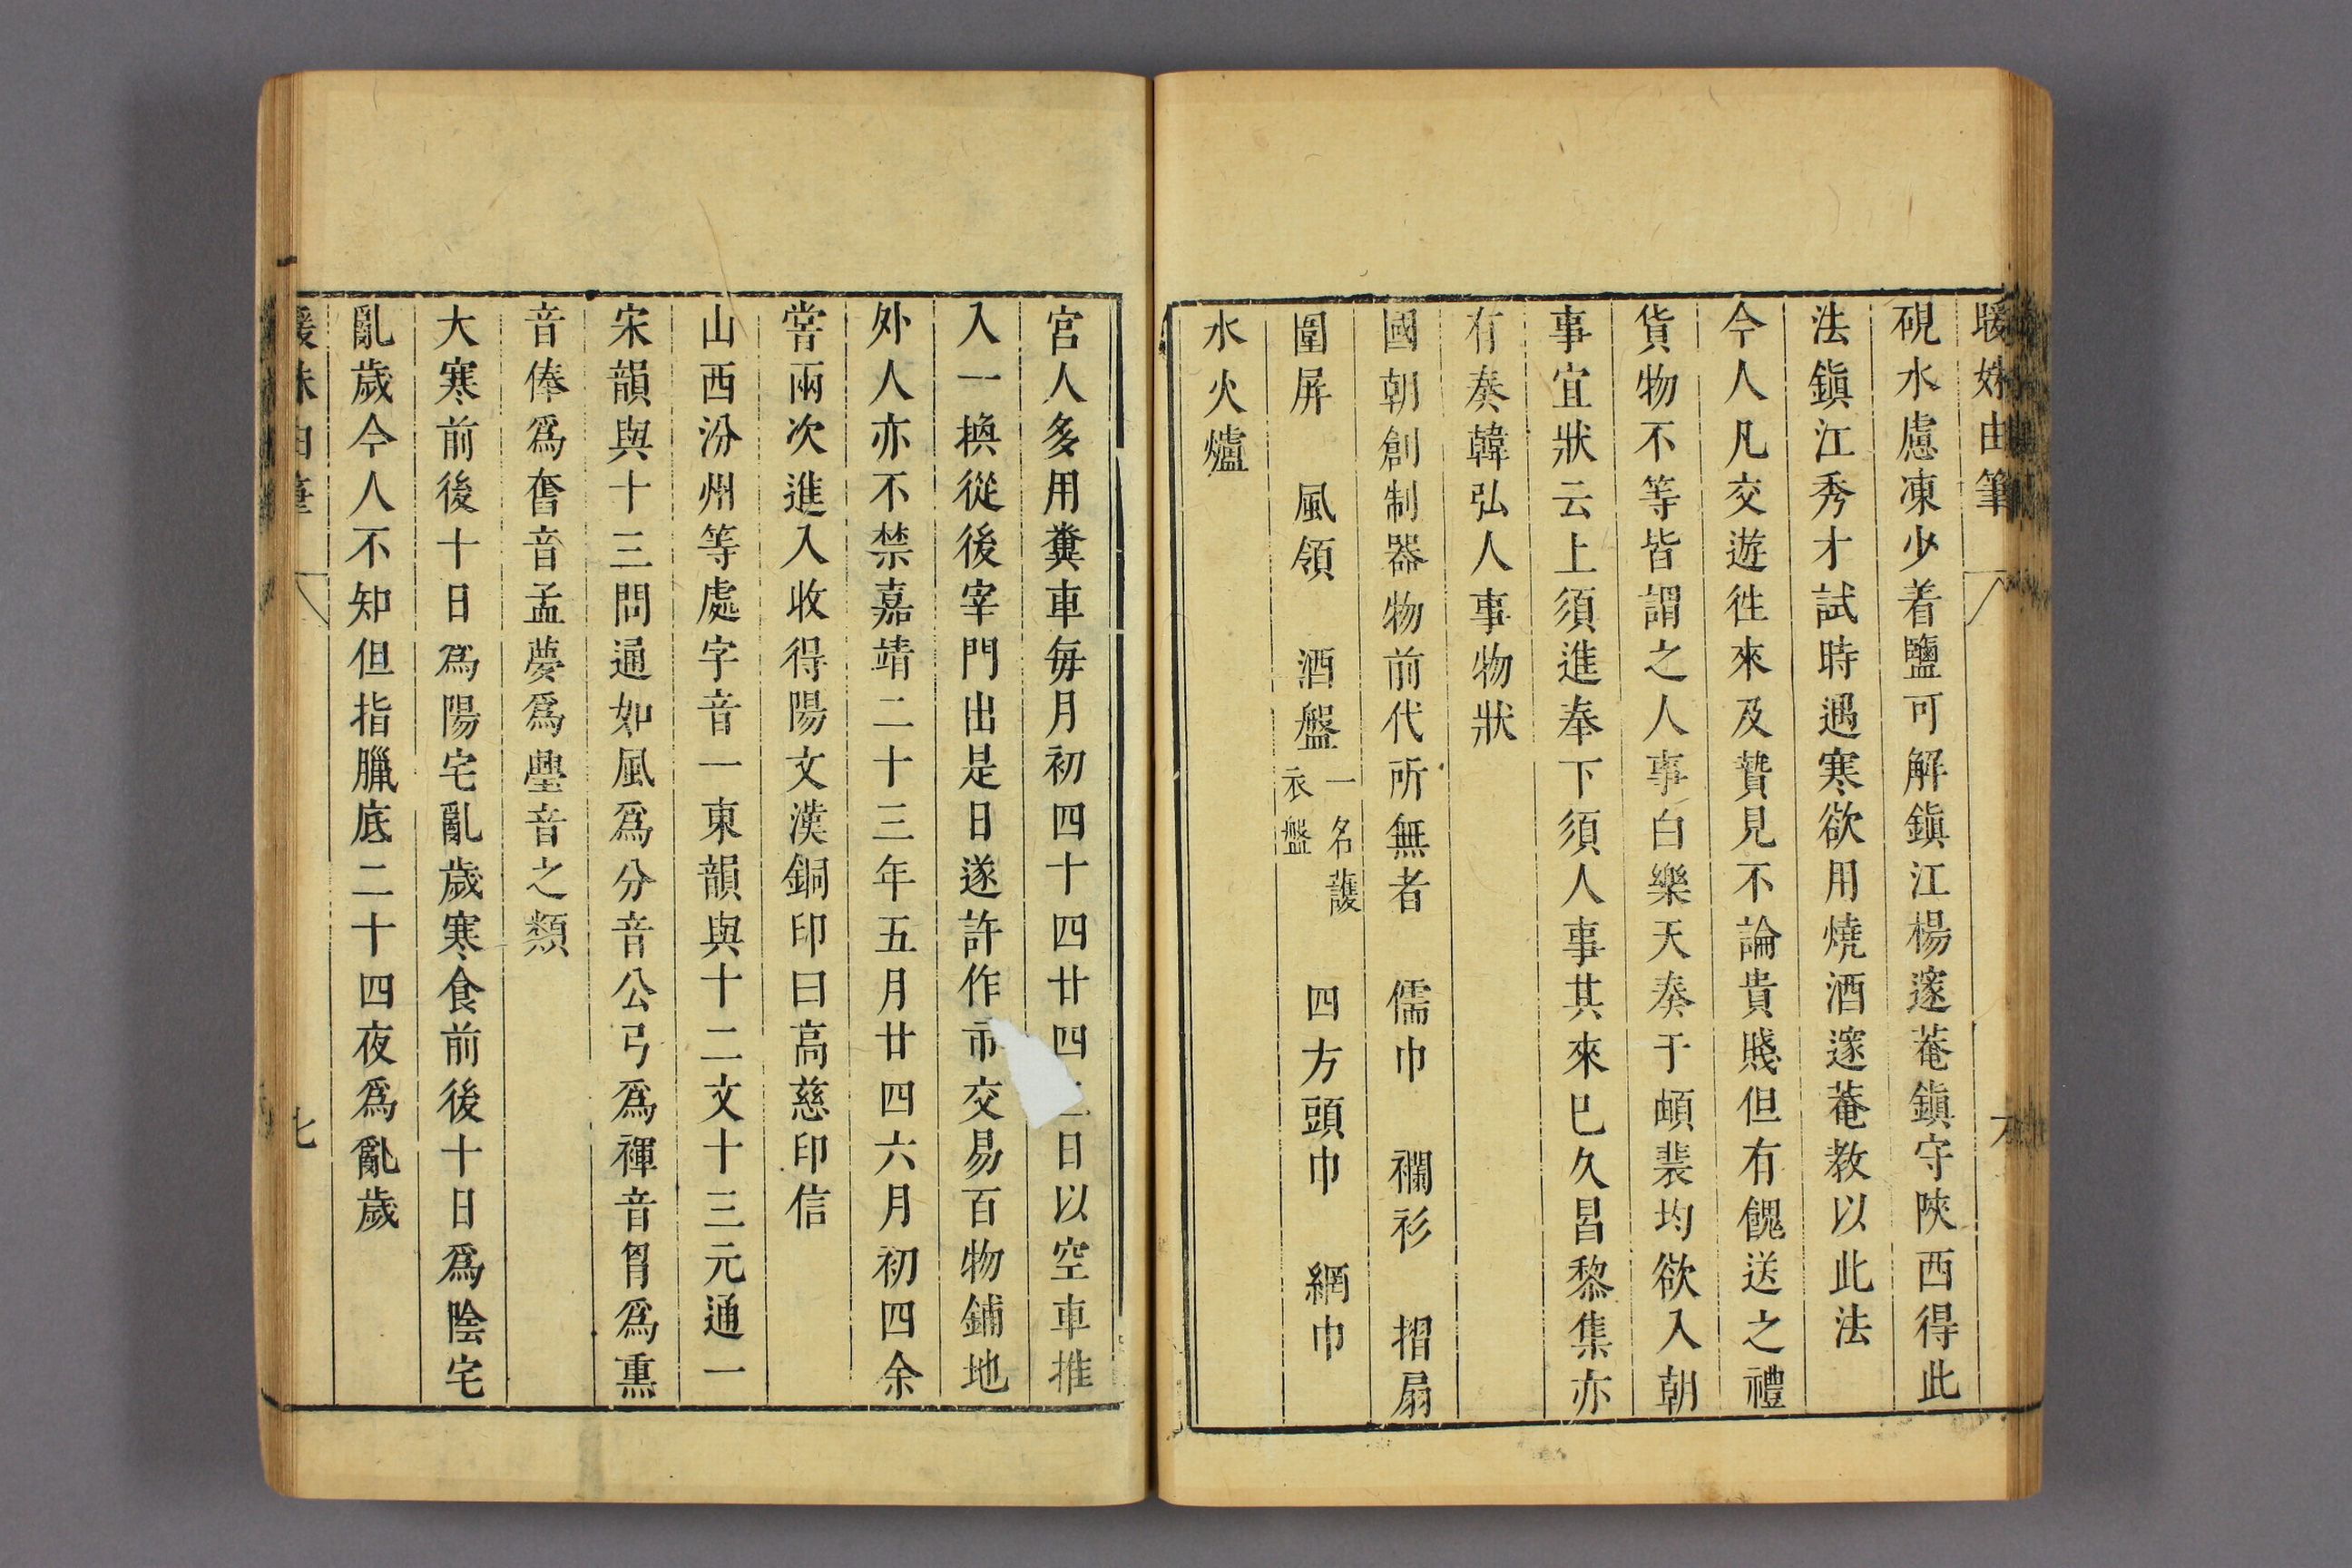 暖姝由筆
硯水慮凍少着鹽可解鎮江楊邃菴鎮守陝西得此
法鎮江秀才試時遇寒欲用燒酒邃菴教以此法
今人凡交遊徃來及贄見不論貴賤但有餽送之禮
貨物不等皆謂之人事白樂天奏于頔裴均欲入朝
事宜狀云上須進奉下須人事其來巳久昌黎集亦
有奏韓弘人事物狀
國朝創制器物前代所無者 儒巾 襴衫 摺扇
圍屏 風領 酒盤 一名護衣盤 四方頭巾 網巾
水火爐
宮人多用糞車每月初四十四廿四 日以空車推
入一換從後宰門出是日遂許作市交易百物鋪地
外人亦不禁嘉靖二十三年五月廿四六月初四余
嘗兩次進入收得陽文漢銅印曰高慈印信
山西汾州等處字音一東韻與十二文十三元通一
宋韻與十三問通如風爲分音公弓爲褌音胷爲熏
音俸爲奮音孟夢爲璺音之類
大寒前後十日爲陽宅亂歲寒食前後十日爲陰宅
亂歲今人不知但指臘底二十四夜爲亂歲
暖姝由筆
七